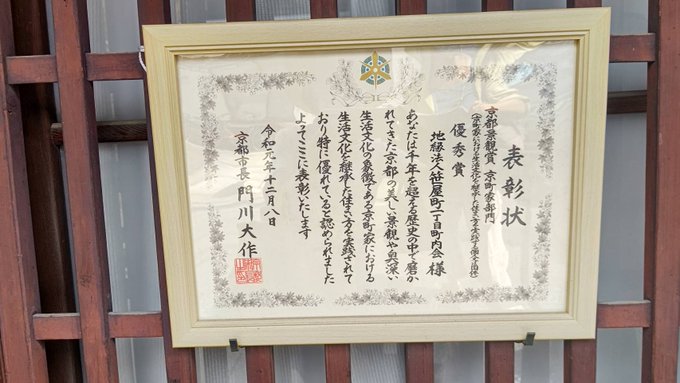 表彰状
京都景観賞 京町家部門
優秀賞
地縁法人笹屋町一丁目町内会 様
あなたは千年を超える歴史の中で磨か
れてきた京都の美しい景観や奥深い
生活文化の象徴である京町家における
生活文化を継承した住まい方を実践されて
おり特に優れていると認められました
よってここに表彰いたします
令和元年十二月八日
京都市長 門川大作